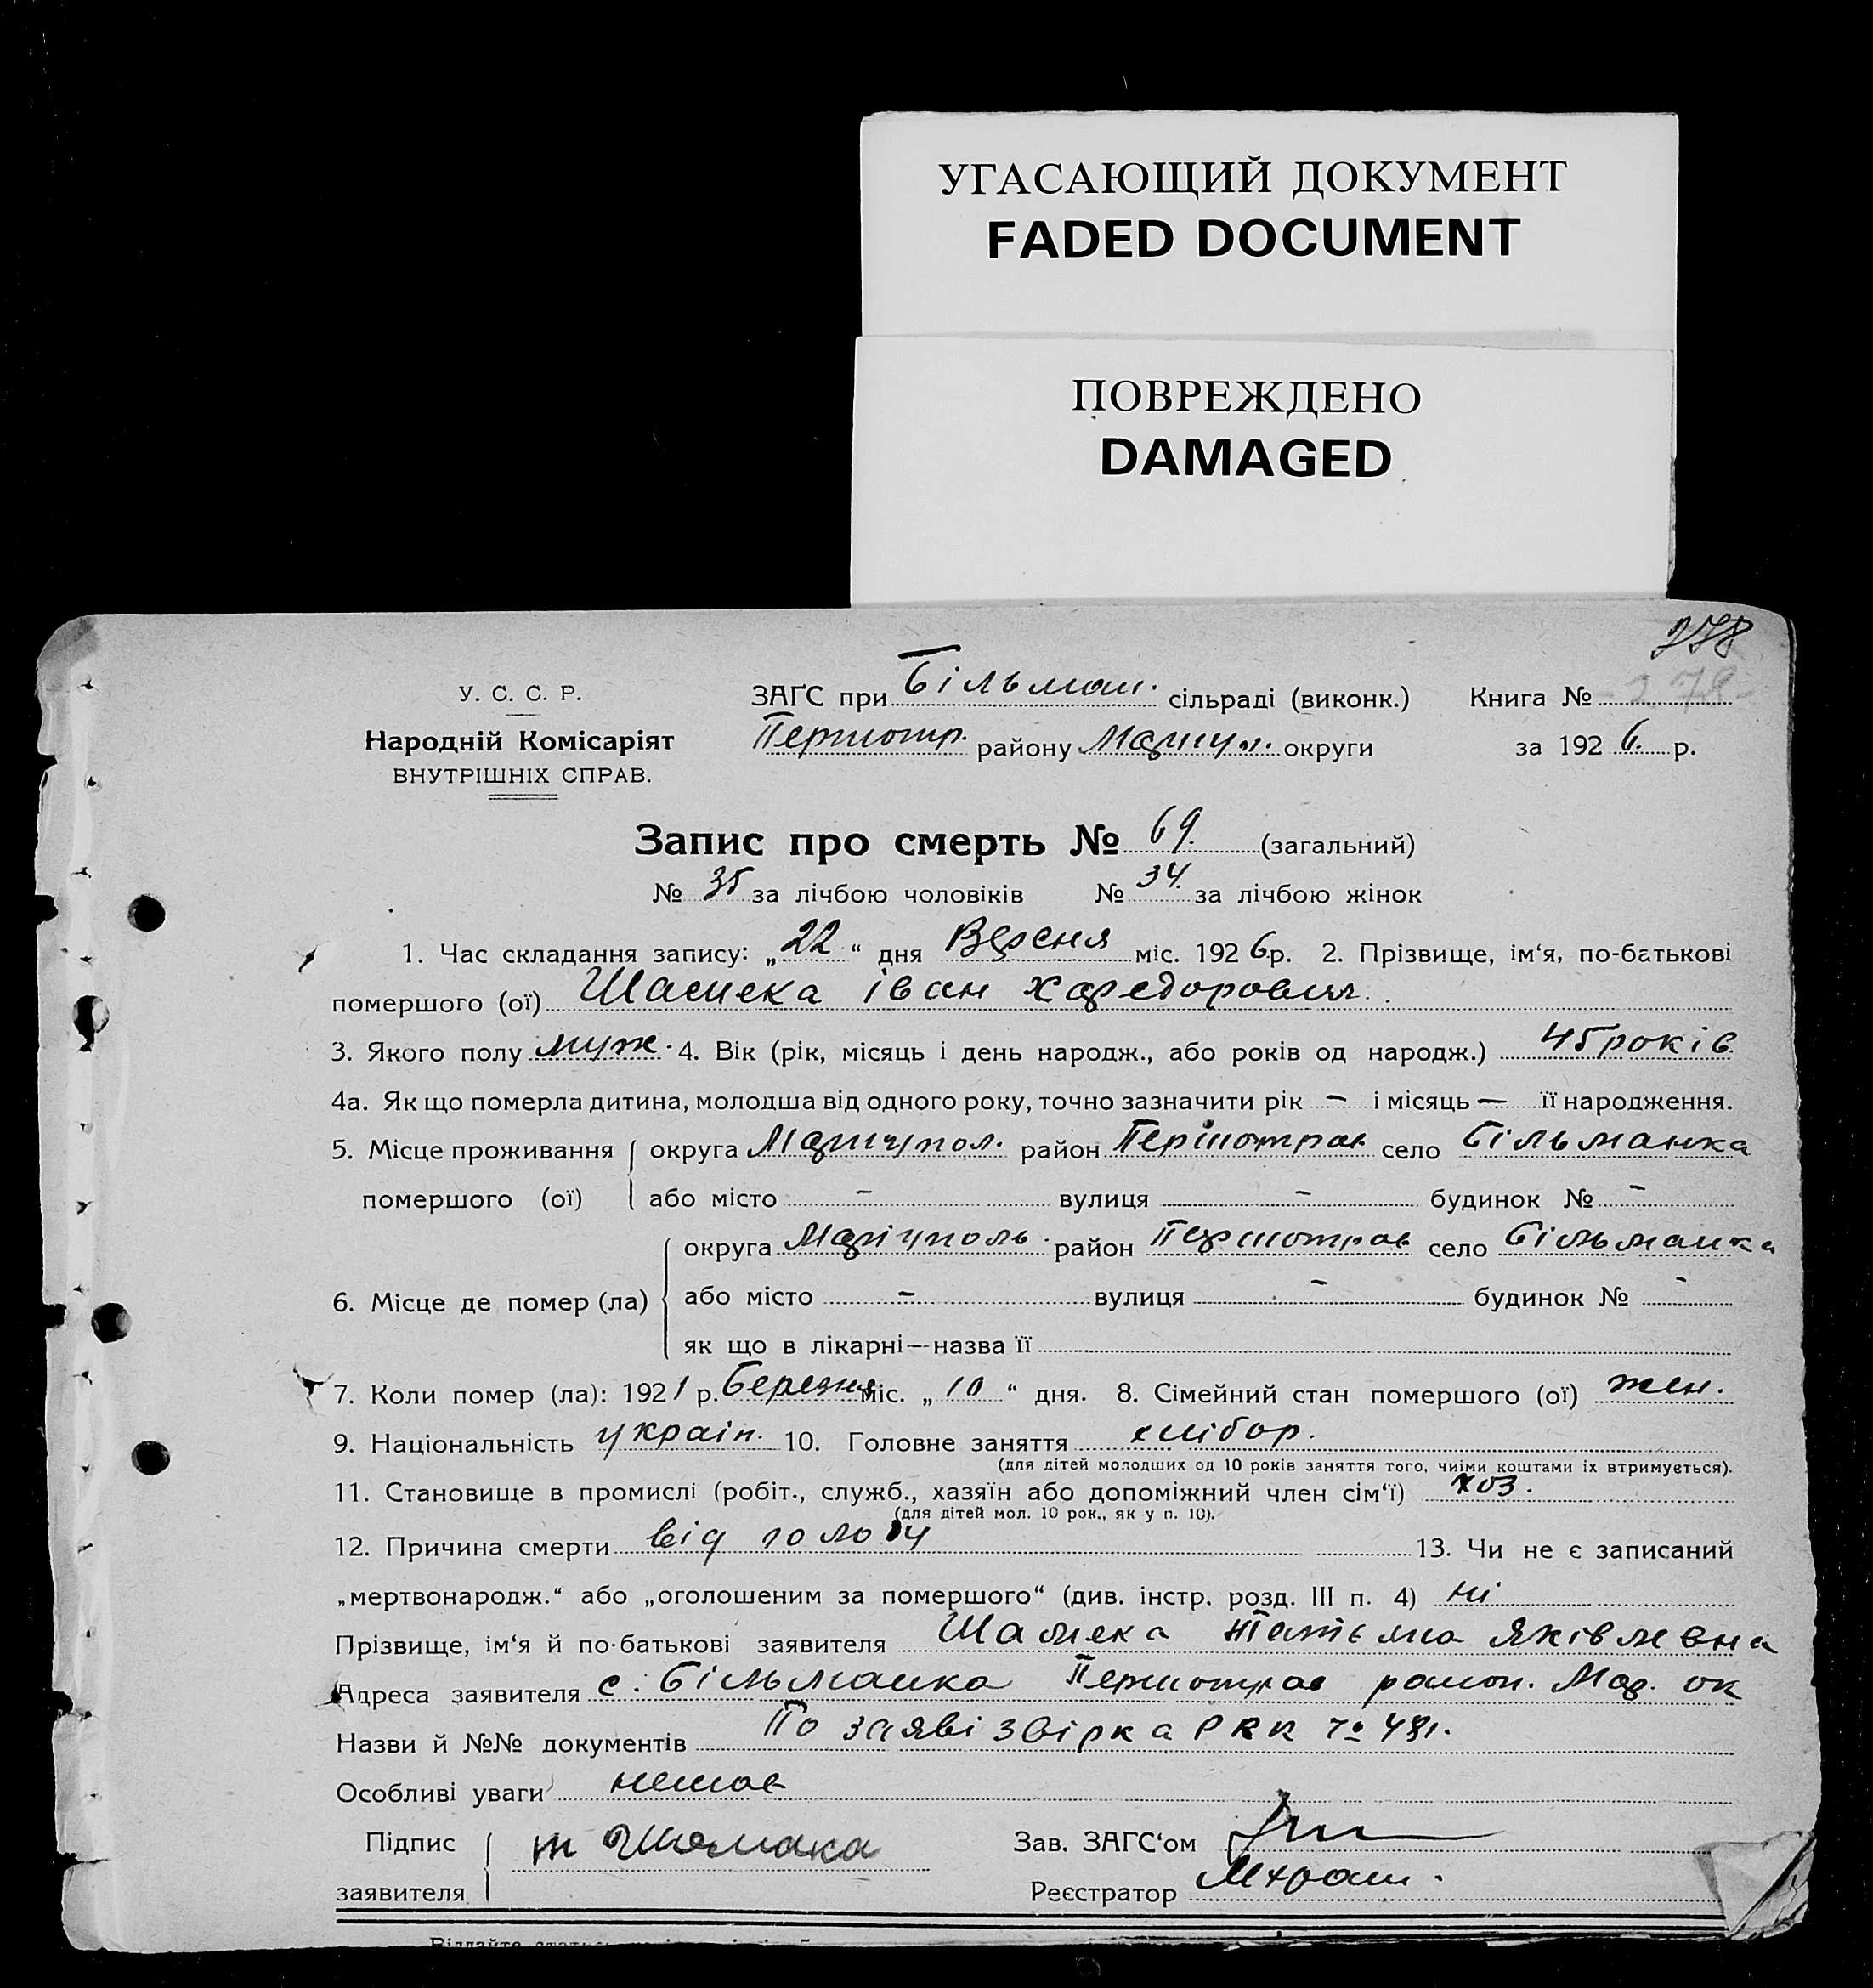 УГАСАЮЩИЙ ДОКУМЕНТ
FADED DOCUMENT
ПОВРЕЖДЕНО
DAMAGED
278
У. С. С. Р.
Народній Комісаріят
ВНУТРІШНІХ СПРАВ.
ЗАГС при Більман. сільраді (виконк.) Книга № 278
Першотр. району Маріуп. округи за 192 6. р.
Запис про смерть № 69. (загальний)
№ 35 за лічбою чоловіків № 34. за лічбою жінок
1. Час складання запису: „22“ дня Вересня міс. 192 6 р. 2. Прізвище, ім‘я, по-батькові
помершого (ої) Шамека Іван
3. Якого полу муж. 4. Вік (рік, місяць і день народж., або років од народж.) 45 років
4а. Як що померла дитина, молодша від одного року, точно зазначити рік – і місяць — її народження.
5. Місце проживання округа Маріупол. район Першотрав село Більманка
помершого (ої) або місто – вулиця – будинок № –
округа Маріуполь район Першотрав село Більманка
6. Місце де помер (ла) або місто – вулиця – будинок № -
як що в лікарні—назва її
7. Коли помер (ла): 192 1 р. Березня міс. „10“ дня. 8. Сімейний стан помершого (ої) жен.
9. Національність україн. 10. Головне заняття хлібор.
(для дітей молодших од 10 років заняття того, чиїми коштами їх втримується).
11. Становище в промислі (робіт., служб., хазяїн або допоміжний член сім‘ї) хоз.
(для дітей мол. 10 рок., як у п. 10).
12. Причина смерти від голоду 13. Чи не є записаний
„мертвонародж.“ або „оголошеним за помершого“ (див. інстр. розд. III п. 4) ні
Прізвище, ім‘я й по-батькові заявителя Шамека Татьяна Яківлевна
Адреса заявителя с. Більманка Першотрав район. Мар. ок
Назви й №№ документів По заяві звірка
Особливі уваги немає
Підпис т Шамака Зав. ЗАГС‘ом
заявителя Реєстратор